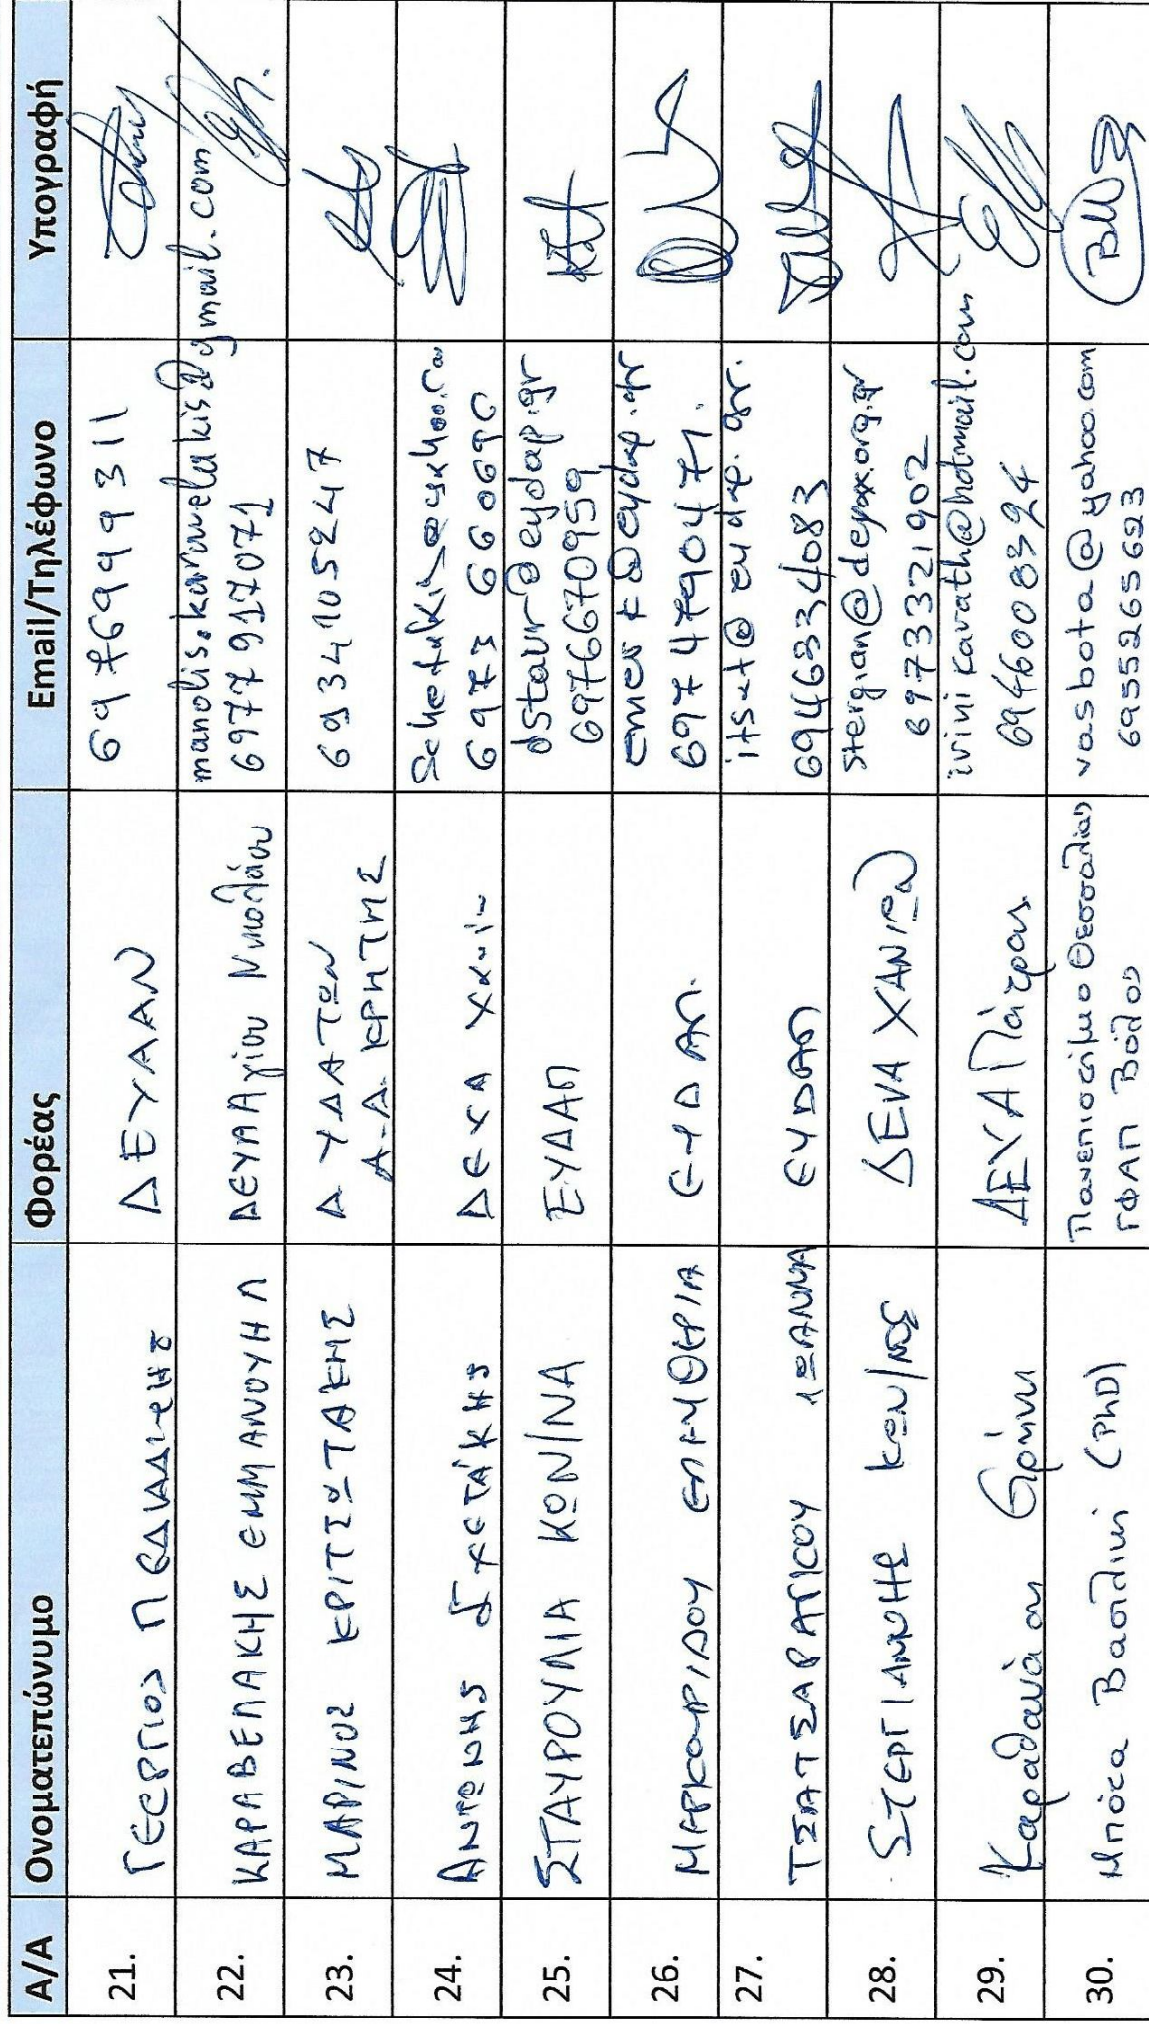 Α/Α Ονοματεπώνυμο Φορέας Email/Τηλέφωνο Υπογραφή
21. ΓΕΩΡΓΙΟΣ ΔΕΥΑΑΝ 6976999311
22. ΚΑΡΑΒΕΛΑΚΗΣ ΕΜΜΑΝΟΥΗΛ ΔΕΥΑΑγίου Νικολάου manolis.karavelakis@gmail.com
6977917071
23. ΜΑΡΙΝΟΣ ΚΡΙΤΣΩΤΑΚΗΣ Δ ΥΔΑΤΩΝ 6934105247
Α.Δ. ΚΡΗΤΗΣ
24. ΑΝΤΩΝΗΣ ΣΧΕΤΑΚΗΣ ΔΕΥΑ
6973660690
25. ΣΤΑΥΡΟΥΛΙΑ ΚΩΝ/ΝΑ ΕΥΔΑΠ dstavr@eydap.gr
6976670959
26. ΕΛΕΥΘΕΡΙΑ ΕΥΔΑΠ. @eydap.gr
6974790471.
27. ΤΣΑΤΣΑΡΑΓΚΟΥ ΙΩΑΝΝΑ ΕΥΔΑΠ itsat@eydap.gr.
6946834083
28. ΣΤΕΡΓΙΑΝΝΗΣ ΚΩΝ/ΝΟΣ ΔΕΥΑ ΧΑΝΙΩΝ stergian@deyax.org.gr
6973321902
29. Καραθανάση Ειρήνη ΔΕΥΑ Πάτρας irinikarath@hotmail.com
6946008324
30. Μπότα Βασιλική (PhD) Πανεπιστήμιο Θεσσαλίας vasbota@yahoo.com
ΓΦΑΠ Βόλος 6955265623